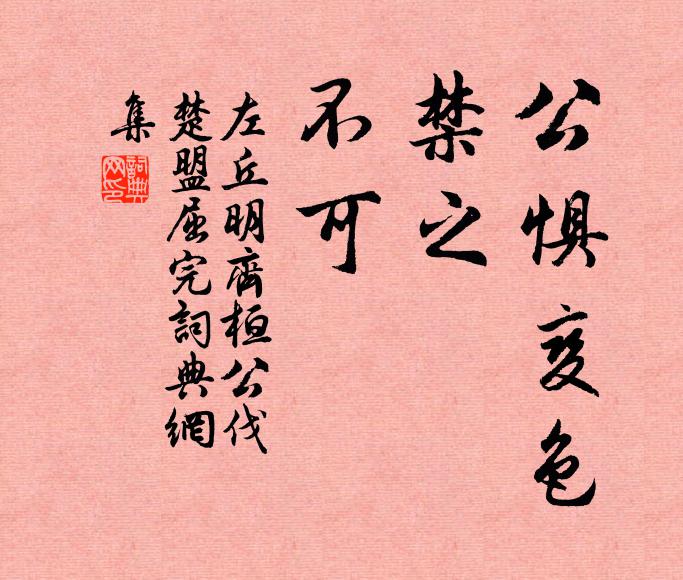 公惧变色
禁之
不可
左丘明齊桓公伐
楚盟屈完詞典網
集
詞典
网印